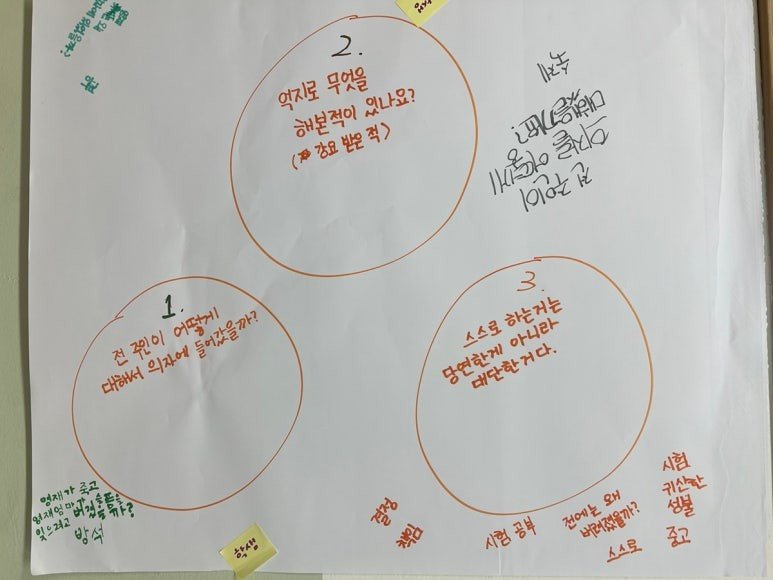 2.
억지로 무엇을
해본적이 있나요?
(강요 받은 적)
숙제
전 주인이
의자를 어떻게
대했을까?
1.
전 주인이 어떻게
대해서 의자에 들어갔을까?
3.
스스로 하는거는
당연한게 아니라
대단한거다.
영재가 죽고
영재엄마가 슬픔을
잊으려고 버렸을까?
방석
학생
결정
책임
시험 공부
전에는 왜
버려졌을까?
스스로
시험
귀산한
성불
중고